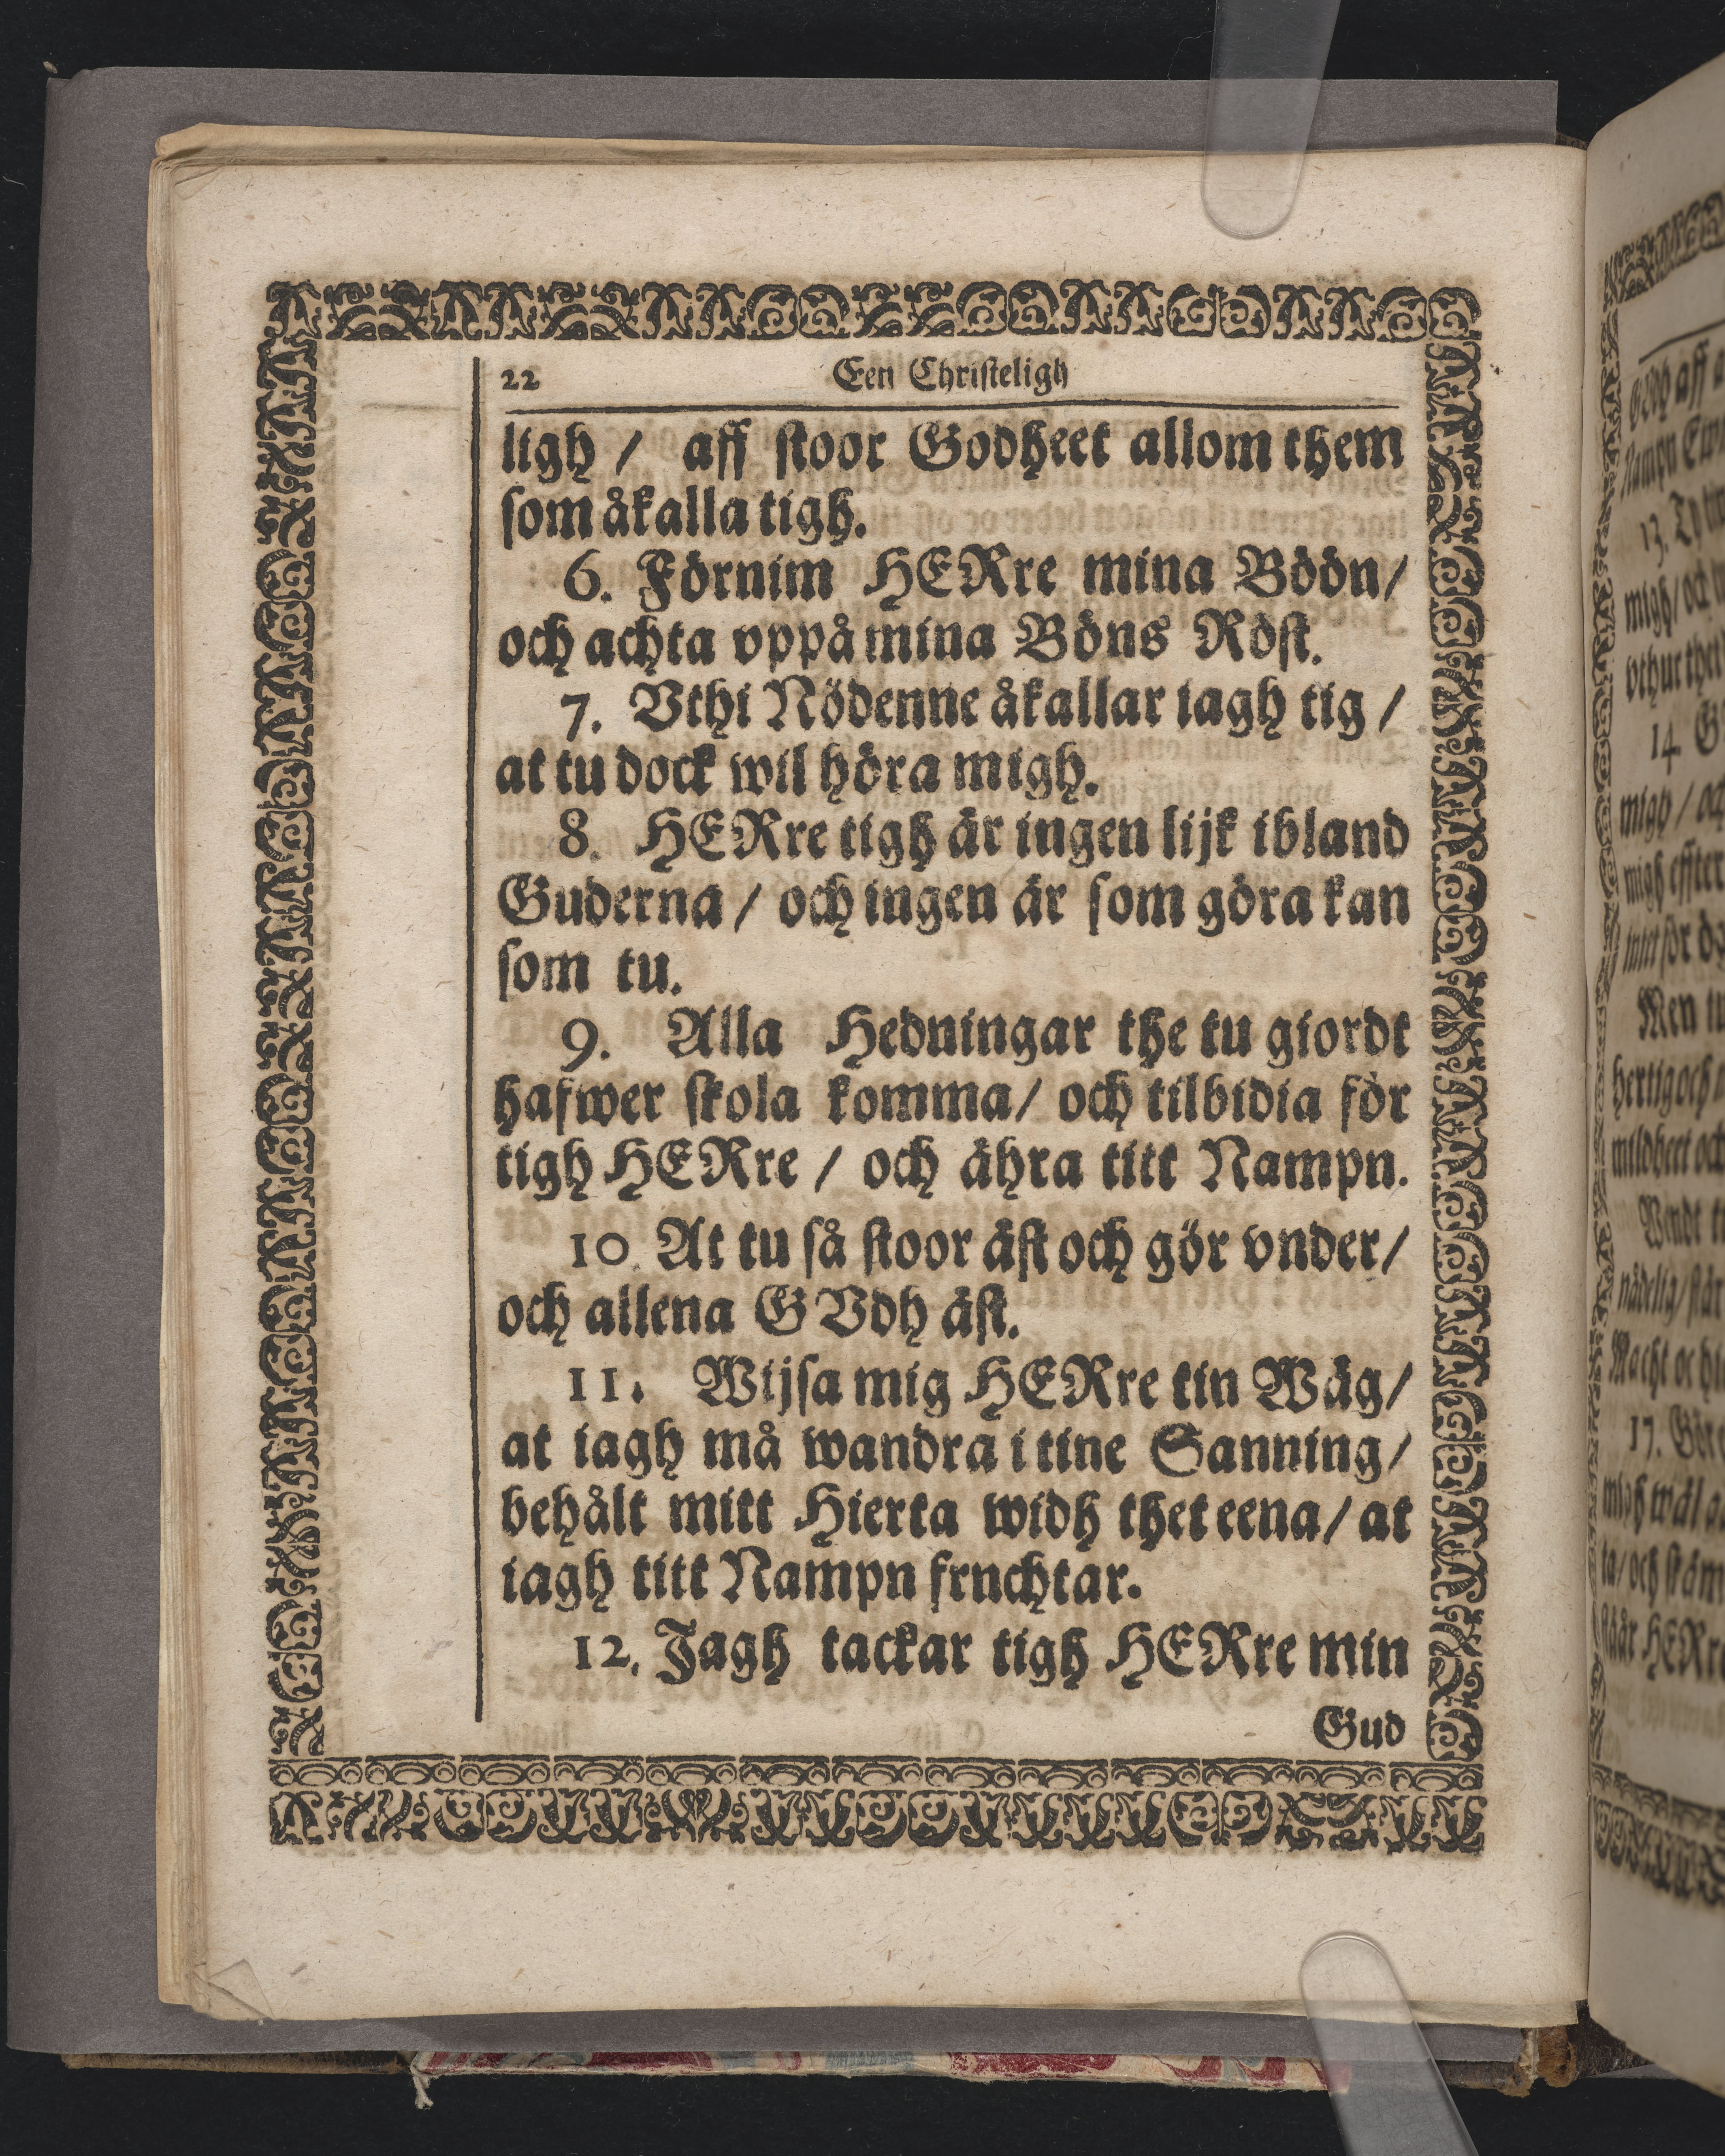 22 Een Christeligh
ligh / aff stoor Godheet allom them
som åkalla tigh.
6. Förnim HERre mina Böön/
och achta vppå mina Böns Röst.
7. Vthi Nödenne åkallar iagh tig /
at tu dock wil höra migh.
8. HERre tigh är ingen lijk ibland
Guderna / och ingen är som göra kan
som tu.
9. Alla Hedningar the tu giordt
hafwer skola komma/ och tilbidia för
tigh HERre / och ähra titt Nampn.
10. At tu så stoor äst och gör vnder/
och allena GVdh äst.
11. Wijsa mig HERre tin Wäg/
at iagh må wandra i tine Sanning/
behålt mitt Hierta widh thet eena/ at
iagh titt Nampn frnchtar.
12. Jagh tackar tigh HERre min
Gud
13.
migh/ och
14. G
migh / och
Men tu
17.
HERre